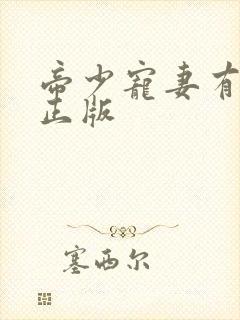 帝少宠妻有
正版
塞西尔